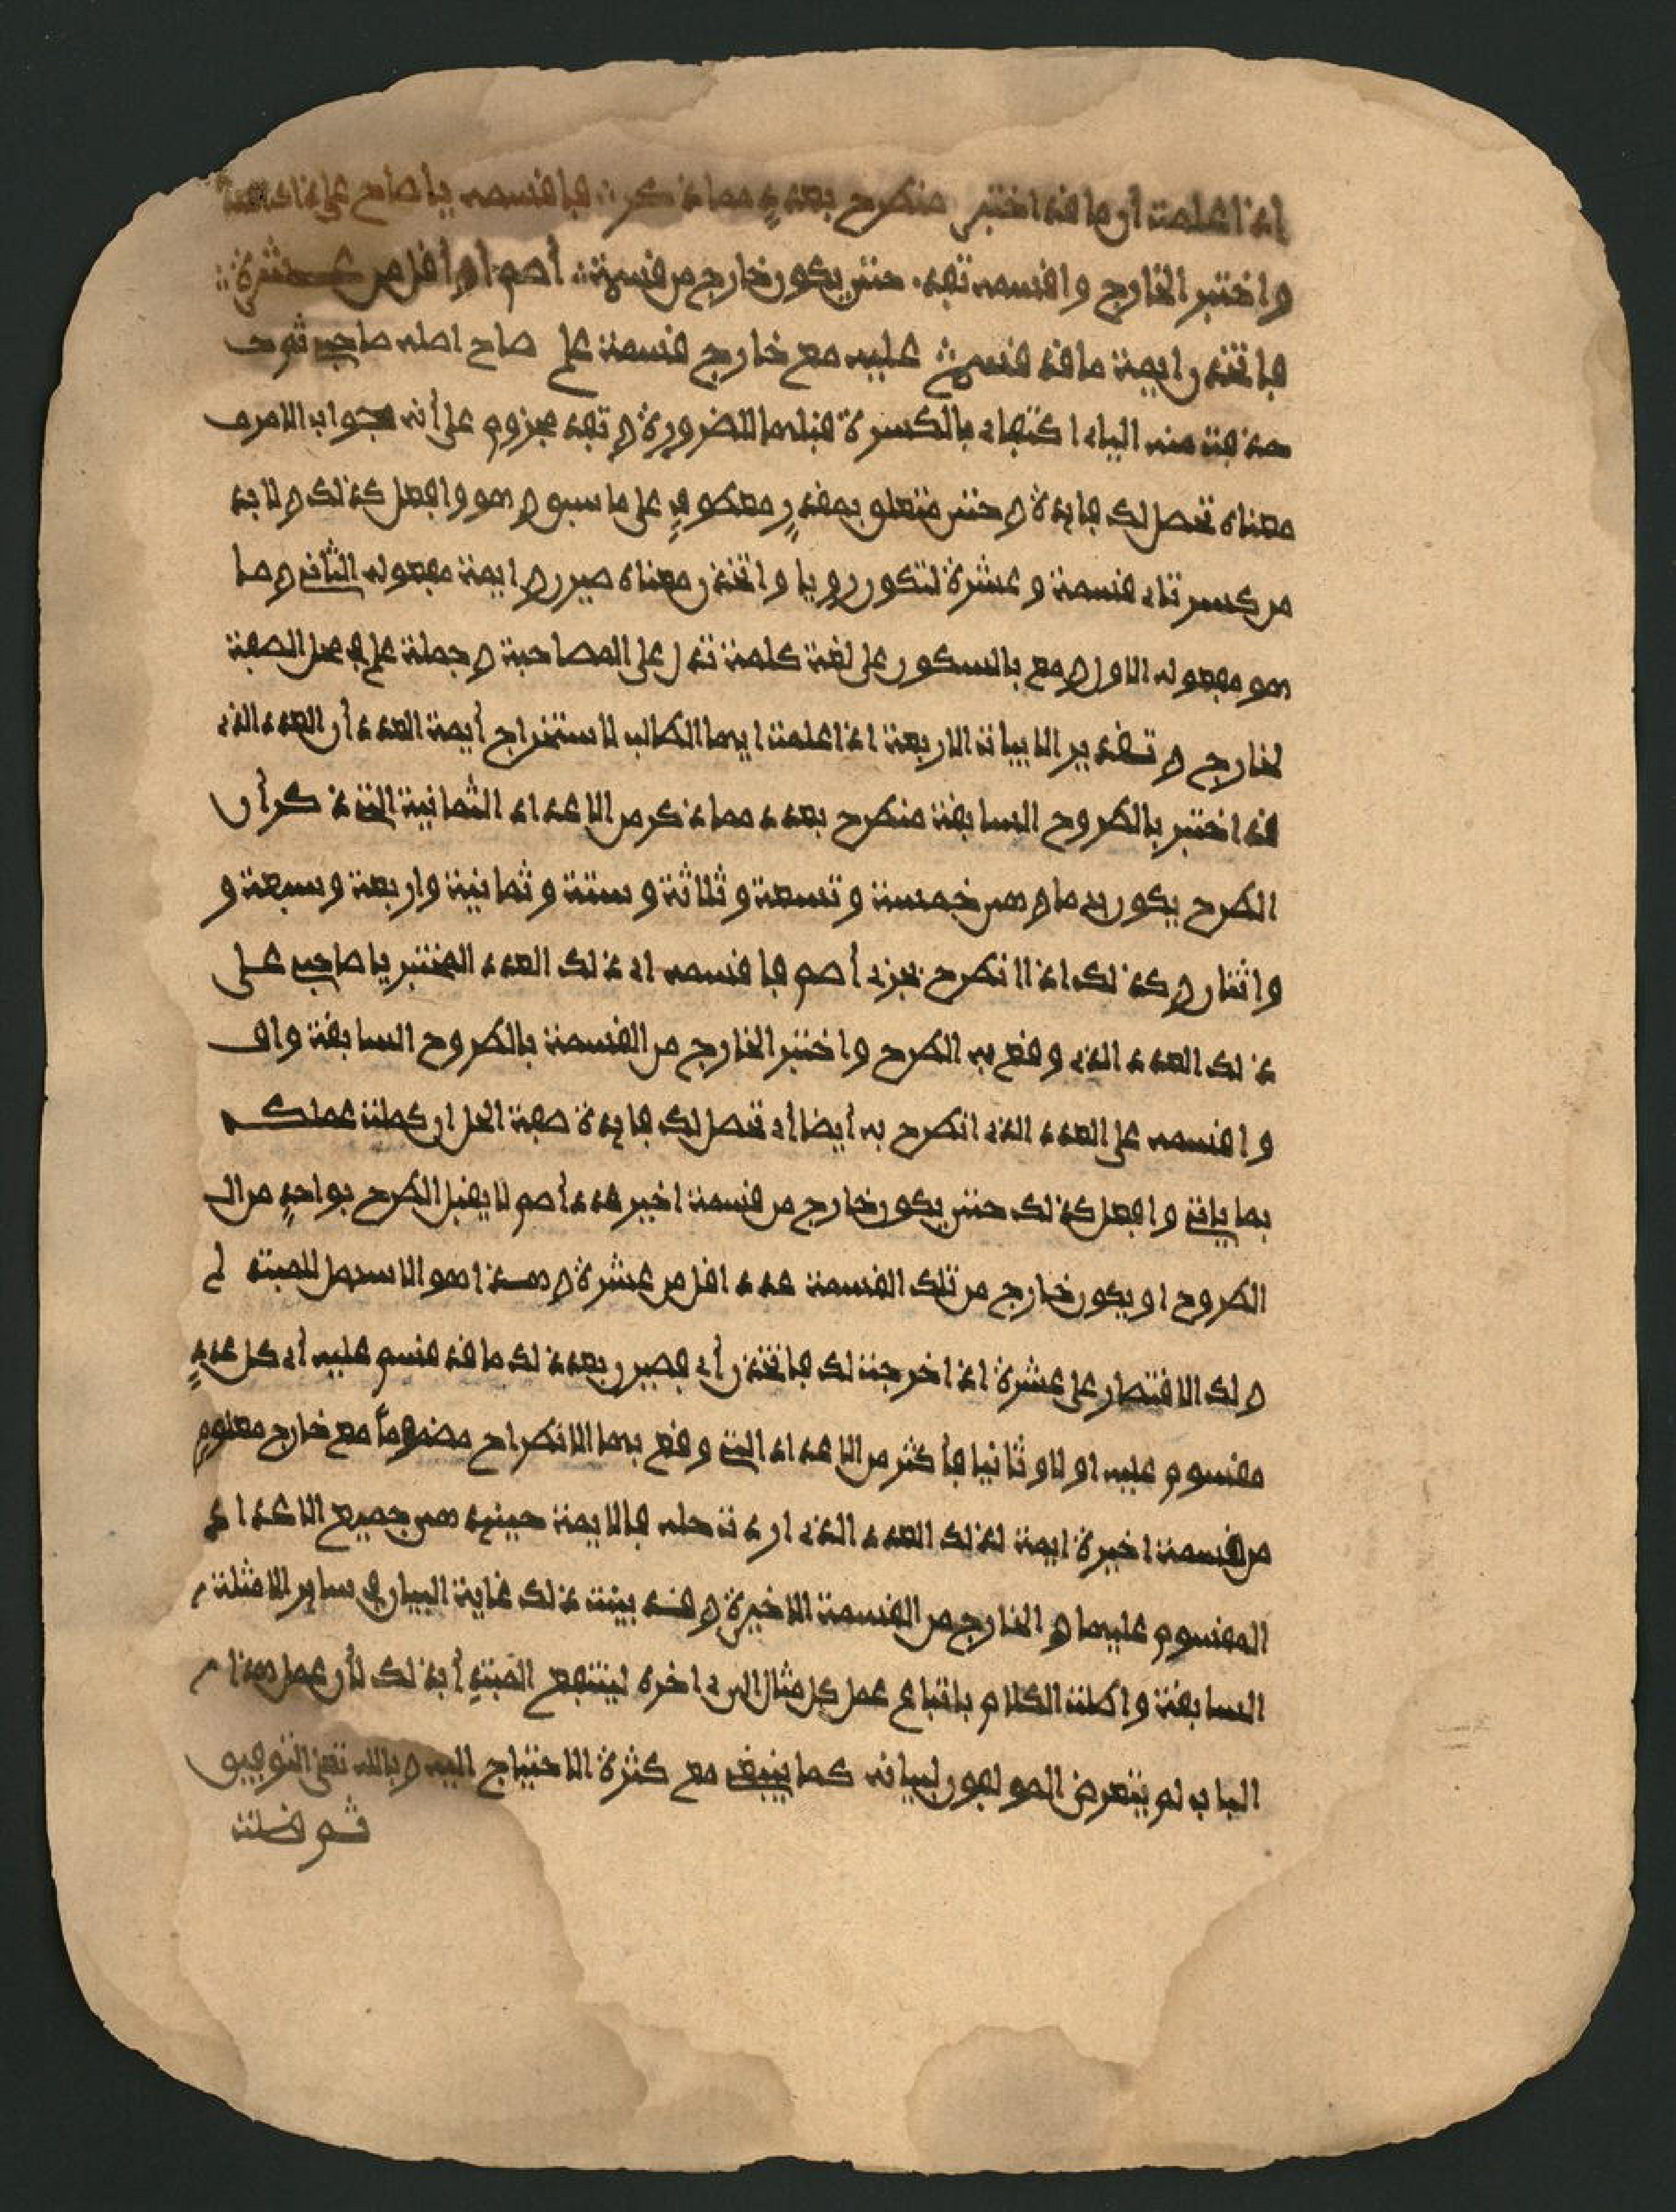 إذا علمت أن ما قد اختبر منطرح بعدد مما ذكر ؞ فاقسمه يا صاح على ذاك
واختبر الخارج واقسمه تفد حتى يكون خارج من قسمة ؞ أصم أو أقل من عشرة ؞
فاتخذن ايمة ما قد قسمت عليه مع خارج قسمة على صاح اصله صاحبي
حذفت منه الياء اكتفاء بالكسرة قبلها للضرورة و تفد مجزوم على أنه جواب الامر
معناه تحصل لك فايدة و حتى متعلق بمقدر معطوف على ما سبق و هو وافعل كذلك و لا بد
من كسر تاء قسمة و عشرة لتكون رويا و اتخذن معناه صيرن و ايمة مفعوله الثاني و ما
هو مفعوله الاول و مع بالسكون على لغة كلمة تدل على المصاحبة و جملة على في محل الصفة
لخارج و تقدير الابيات الاربعة اذا علمت ايها الطالب لاستخراج أيمة العدد أن العدد الذي
قد اختبر بالطروح السابقة منطرح بعدد مما ذكر من الاعداد الثمانية التي ذكر أن
الطرح يكون بها و هي خمسة و تسعة و ثلاثة و ستة و ثمانية و اربعة و سبعة و
و اثنان و كذلك اذا انطرح بجزء أصم فاقسمه اي ذلك العدد المختبر يا صاحبي على
ذلك العدد الذي وقع به الطرح و اختبر الخارج من القسمة بالطروح السابقة واق
و اقسمه على العدد الذي انطرح به أيضا أي تحصل لك فايدة صفة الحل ان كملت عملك
بما ياتي و افعل كذلك حتى يكون خارج من قسمة اخير عدد أصم لا يقبل الطرح بواحد من ال
الطروح او يكون خارج من تلك القسمة عدد اقل من عشرة و هذا هو الاسهل للمبتد
و لك الاقتصار على عشرة اذا خرجت لك فاتخذن أي فصيرن بعد ذلك ما قد قسم عليه أي كل عدد
مقسوم عليه اولا و ثانيا فأكثر من الاعداد التي وقع بها الانطراح مضموما مع خارج معلوم
من قسمة اخيرة ايمة لذلك العدد الذي اردت حله فالايمة حينئذ هي جميع الاعداد
المقسوم عليها و الخارج من القسمة الاخيرة و قد بينت ذلك غاية البيان في ساير الامثلة
السابقة و اطلت الكلام باتباع عمل كل مثال الى اخره لينتفع المبتدأ بذلك لأن عمل هذا
الباب لم يتعرض المولفون لبيانه كما ينبغي مع كثرة الاحتياج اليه و بالله تعلى التوفيق
ثم قلت